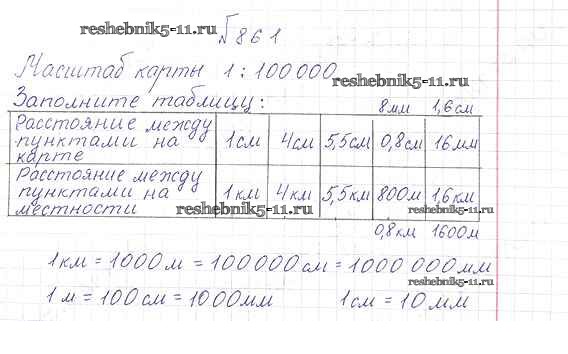 reshebnik5-11.ru
№861
Масштаб карты 1:100000.
reshebnik5-11.ru
Заполните таблицу:
8мм 1,6см
Расстояние между пунктами на карте 1см 4см 5,5см 0,8см 16мм
Расстояние между пунктами на местности 1км 4км 5,5км 800м 1,6км
reshebnik5-11.ru
reshebnik5-11.ru
0,8км 1600м
1км = 1000м = 100000см = 1000 000мм
reshebnik5-11.ru
1м = 100см = 1000мм 1см = 10мм